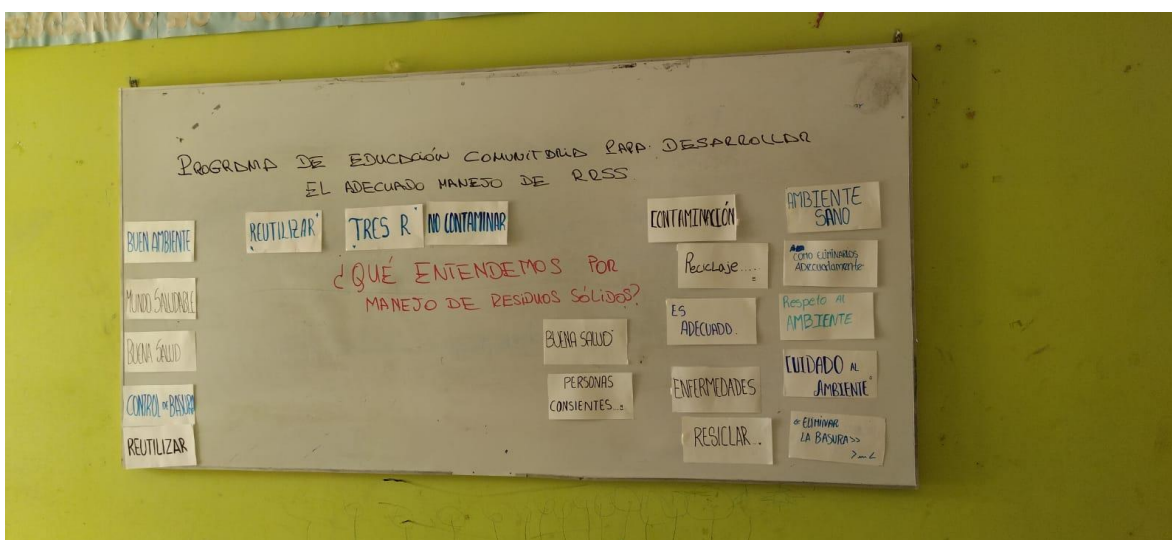 PROGRAMA DE EDUCACIÓN COMUNITARIA PARA DESARROLLAR
EL ADECUADO MANEJO DE RRSS
BUEN AMBIENTE
MUNDO SALUDABLE
BUENA SALUD
CONTROL DE BASURA
REUTILIZAR
REUTILIZAR
TRES R
NO CONTAMINAR
¿QUÉ ENTENDEMOS POR
MANEJO DE RESIDUOS SÓLIDOS?
BUENA SALUD
PERSONAS
CONSIENTES...
CONTAMINACIÓN
Reciclaje.....
ES
ADECUADO.
ENFERMEDADES
RESICLAR...
AMBIENTE
SANO
COMO ELIMINARLOS
ADECUADAMENTE
Respeto Al
AMBIENTE
CUIDADO AL
AMBIENTE
"ELIMINAR
LA BASURA>>
>_<